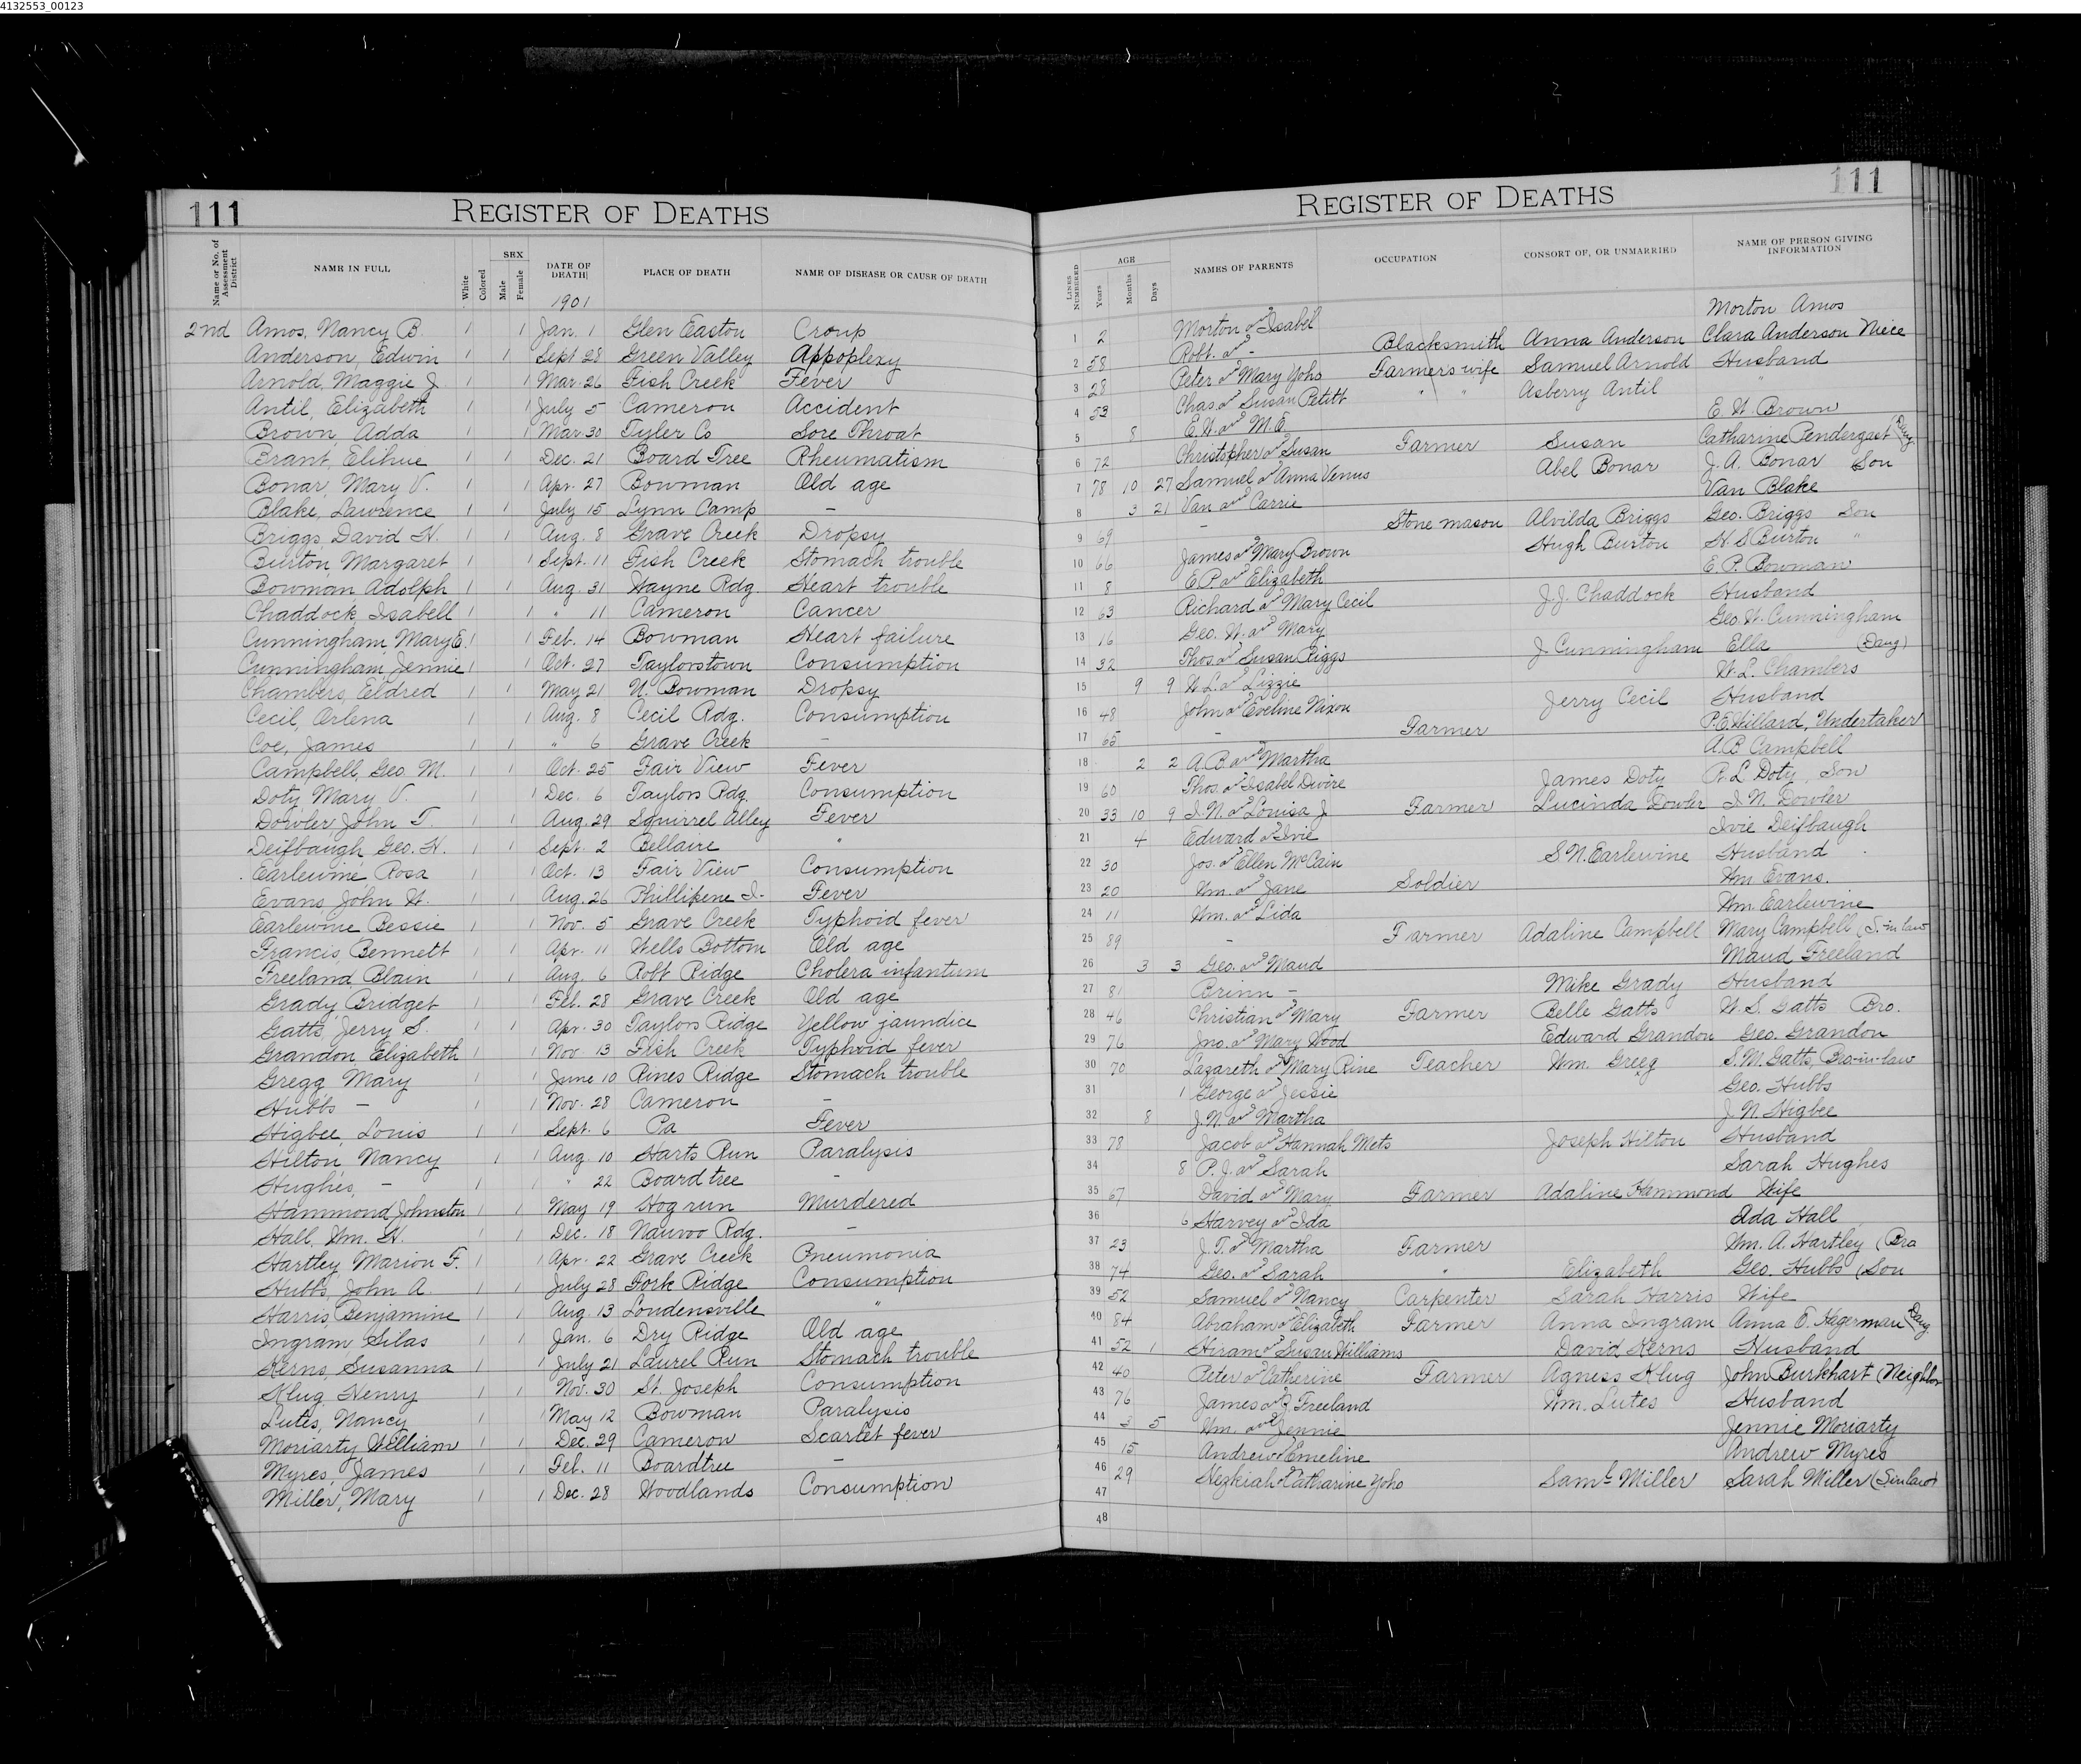 4132553_00123
111 REGISTER OF DEATHS
Name or No. of Assessment District NAME IN FULL White Colored SEX Male Female DATE OF DEATH PLACE OF DEATH NAME OF DISEASE OR CAUSE OF DEATH
1901
2nd Amos, Nancy B. 1 1 Jan. 1 Glen Easton Croup
Anderson, Edwin 1 1 Sept 28 Green Valley Appoplexy
Arnold, Maggie J. 1 1 Mar. 26 Fish Creek Fever
Antil, Elizabeth 1 1 July 5 Cameron Accident
Brown, Adda 1 1 Mar. 30 Tyler Co Sore Throat
Brant, Elihue 1 1 Dec. 21 Board Tree Rheumatism
Bonar, Mary V. 1 1 Apr. 27 Bowman Old age
Blake, Lawrence 1 1 July 15 Lynn Camp -
Briggs, David H. 1 1 Aug. 8 Grave Creek Dropsy
Burton, Margaret 1 1 Sept. 11 Fish Creek Stomach trouble
Bowman, Adolph 1 1 Aug. 31 Wayne Rdg. Heart trouble
Chaddock, Isabell 1 1 " 11 Cameron Cancer
Cunningham, Mary E. 1 1 Feb. 14 Bowman Heart failure
Cunningham, Jennie 1 1 Oct. 27 Taylorstown Consumption
Chambers, Eldred 1 1 May 21 N. Bowman Dropsy
Cecil, Orlena 1 1 Aug. 8 Cecil Rdg. Consumption
Coe, James 1 1 " 6 Grave Creek -
Campbell, Geo. M. 1 1 Oct. 25 Fair View Fever
Doty, Mary V. 1 1 Dec. 6 Taylors Rdg. Consumption
Dowler, John T. 1 1 Aug. 29 Squirrel Alley Fever
Deifbaugh, Geo. H. 1 1 Sept. 2 Bellaire "
Earlewine, Rosa 1 1 Oct. 13 Fair View Consumption
Evans, John W. 1 1 Aug. 26 Phillipene I- Fever
Earlewine Bessie 1 1 Nov. 5 Grave Creek Typhoid fever
Francis, Bennett 1 1 Apr. 11 Wells Bottom Old age
Freeland, Blain 1 1 Aug. 6 Robt Ridge Cholera infantum
Grady, Bridget 1 1 Feb. 28 Grave Creek Old age
Gatts, Jerry S. 1 1 Apr. 30 Taylors Ridge Yellow jaundice
Grandon Elizabeth 1 1 Nov. 13 Fish Creek Typhoid fever
Gregg Mary 1 1 June 10 Rines Ridge Stomach trouble
Hubbs - 1 1 Nov. 28 Cameron -
Higbee, Louis 1 1 Sept. 6 Pa Fever
Hilton, Nancy 1 1 Aug. 10 Harts Run Paralysis
Hughes, - 1 1 " 22 Board tree -
Hammond, Johnston 1 1 May 19 Hog run Murdered
Hall, Wm. H. 1 1 Dec. 18 Nauvoo Rdg. -
Hartley, Marion F. 1 1 Apr. 22 Grave Creek Pneumonia
Hubbs, John A. 1 1 July 28 Fork Ridge Consumption
Harris Benjamine 1 1 Aug. 13 Loudensville "
Ingram Silas 1 1 Jan. 6 Dry Ridge Old age
Kerns, Susanna 1 1 July 21 Laurel Run Stomach trouble
Klug, Henry 1 1 Nov. 30 St. Joseph Consumption
Lutes, Nancy 1 1 May 12 Bowman Paralysis
Moriarty William 1 1 Dec. 29 Cameron Scarlet fever
Myres, James 1 1 Feb. 11 Boardtree -
Miller, Mary 1 1 Dec. 28 Woodlands Consumption
REGISTER OF DEATHS 111
LINES NUMBERED AGE Years Months Days NAMES OF PARENTS OCCUPATION CONSORT OF, OR UNMARRIED NAME OF PERSON GIVING INFORMATION
1 2 Morton and Isabel Morton Amos
2 58 Robt. and - Blacksmith Anna Anderson Clara Anderson Niece
3 28 Peter and Mary Yoho Farmer's wife Samuel Arnold Husband
4 53 Chas. and Susan Petitt " " Asberry Antil "
5 8 E. W. and M. E. E. W. Brown
6 72 Christopher and Susan Farmer Susan Catharine Pendergast (Daug.
7 78 10 27 Samuel and Anna Venus Abel Bonar J. A. Bonar Son
8 3 21 Van and Carrie Van Blake
9 69 - Stone mason Alvilda Briggs Geo. Briggs Son
10 66 James and Mary Brown Hugh Burton H S Burton "
11 8 E P and Elizabeth E. P. Bowman
12 63 Richard and Mary Cecil J. J. Chaddock Husband
13 16 Geo. W. and Mary Geo. W. Cunningham
14 32 Thos and Susan Riggs J. Cunningham Ella (Daug)
15 9 9 W. L. and Lizzie W. L. Chambers
16 48 John and Eveline Nixon Jerry Cecil Husband
17 65 - Farmer P. E. Hillard, Undertaker
18 2 2 A. B and Martha A. B Campbell
19 60 Thos. and Isabel Divire James Doty R. L Doty, Son
20 33 10 9 I. N. and Louisa J Farmer Lucinda Dowler I. N. Dowler
21 4 Edward and Ivie Ivie Deifbaugh
22 30 Jos. and Ellen McCain S. N. Earlewine Husband
23 20 Wm. and Jane Soldier Wm. Evans.
24 11 Wm. and Lida Wm. Earlewine
25 89 - Farmer Adaline Campbell Mary Campbell (S.-in law
26 3 3 Geo. and Maud Maud Freeland
27 81 Brinn - Mike Grady Husband
28 46 Christian and Mary Farmer Belle Gatts W. S. Gatts Bro.
29 76 Jno. and Mary Wood Edward Grandon Geo. Grandon
30 70 Lazareth and Mary Rine Teacher Wm. Greeg S. M. Gatts, Bro-in-law
31 1 George and Jessie Geo. Hubbs
32 8 J. N. and Martha J. N. Higbee
33 78 Jacob and Hannah Mets Joseph Hilton Husband
34 8 P. J. and Sarah Sarah Hughes
35 67 David and Mary Farmer Adaline Hammond Wife
36 6 Harvey and Ida Ida Hall
37 23 J. T. and Martha Farmer Wm. A. Hartley (Bro
38 74 Geo. and Sarah " Elizabeth Geo. Hubbs (Son
39 52 Samuel and Nancy Carpenter Sarah Harris Wife
40 84 Abraham and Elizabeth Farmer Anna Ingram Anna E. Hagerman (Daug.
41 52 1 Hiram and Susan Williams David Kerns Husband
42 40 Peter and Catherine Farmer Agness Klug John Burkhart (Neighbor
43 76 James and J. Freeland Wm. Lutes Husband
44 3 5 Wm. and Jennie Jennie Moriarty
45 15 Andrew and Emeline Andrew Myres
46 29 Hezkiah & Catharine Yoho Saml Miller Sarah Miller (S.inlaw)
47
48